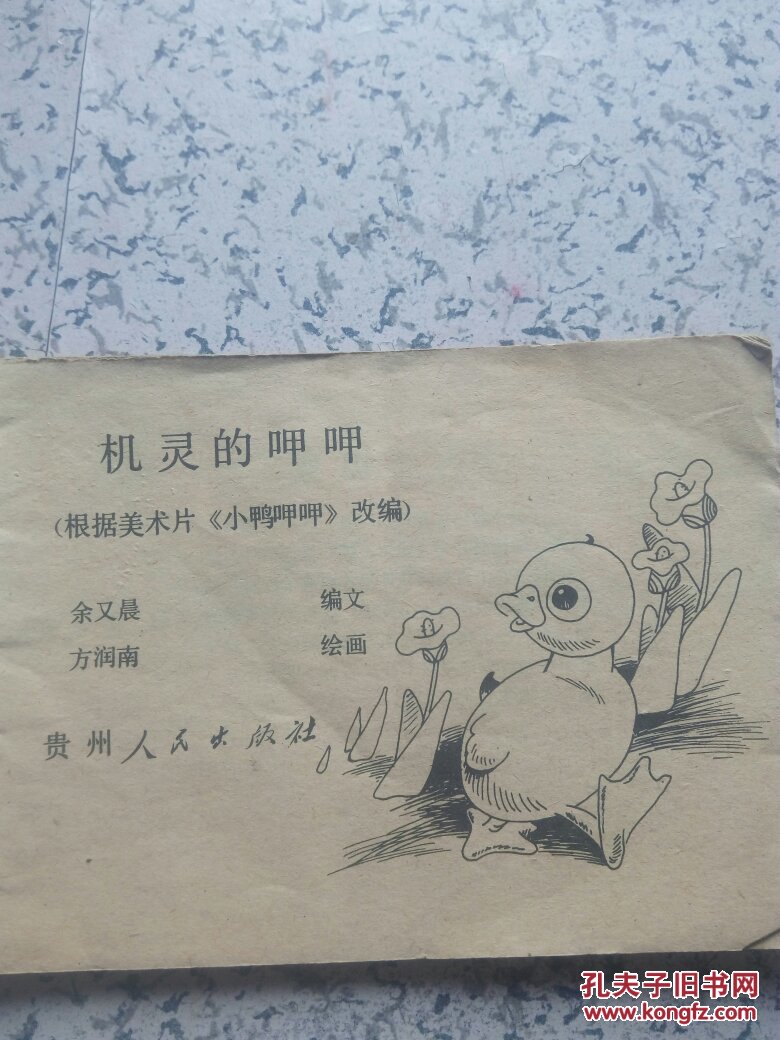 机灵的呷呷
(根据美术片《小鸭呷呷》改编)
余又晨 编文
方润南 绘画
贵州人民出版社
孔夫子旧书网
www.kongfz.com